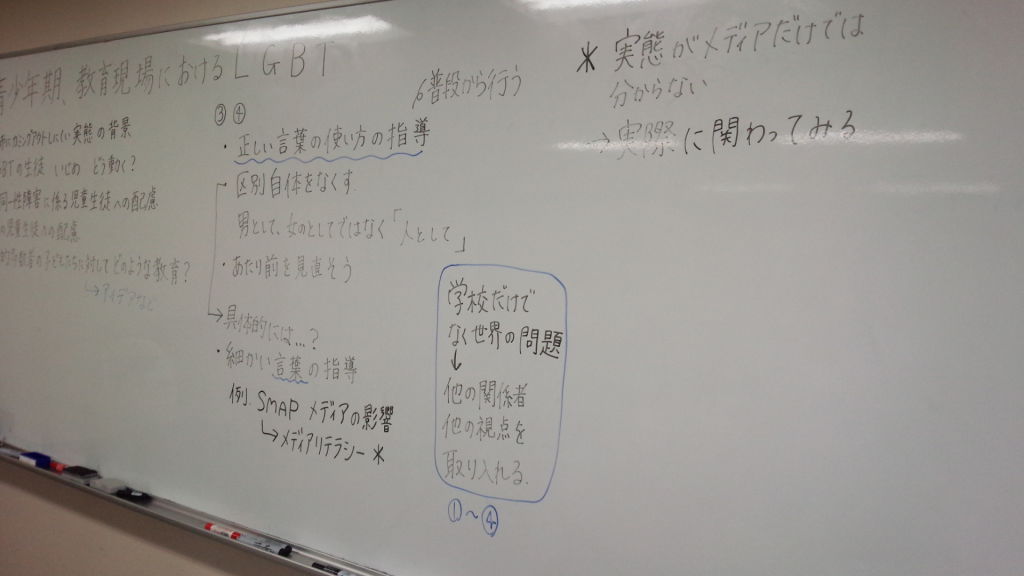 青少年期、教育現場におけるLGBT
カミングアウトしにくい実態の背景
BTの生徒 いじめ どう動く?
同一性障害に係る児童生徒への配慮
の児童生徒への配慮
的少数者の子どもたちに対してどのような教育?
↳アイデアなど
③④
普段から行う
・正しい言葉の使い方の指導
・区別自体をなくす
男として、女のとしてではなく「人として」
・あたり前を見直そう
→具体的には…?
・細かい言葉の指導
例. SMAP メディアの影響
↳メディアリテラシー *
学校だけで
なく世界の問題
↓
他の関係者
他の視点を
取り入れる.
①~④
* 実態がメディアだけでは
分からない
→実際に関わってみる